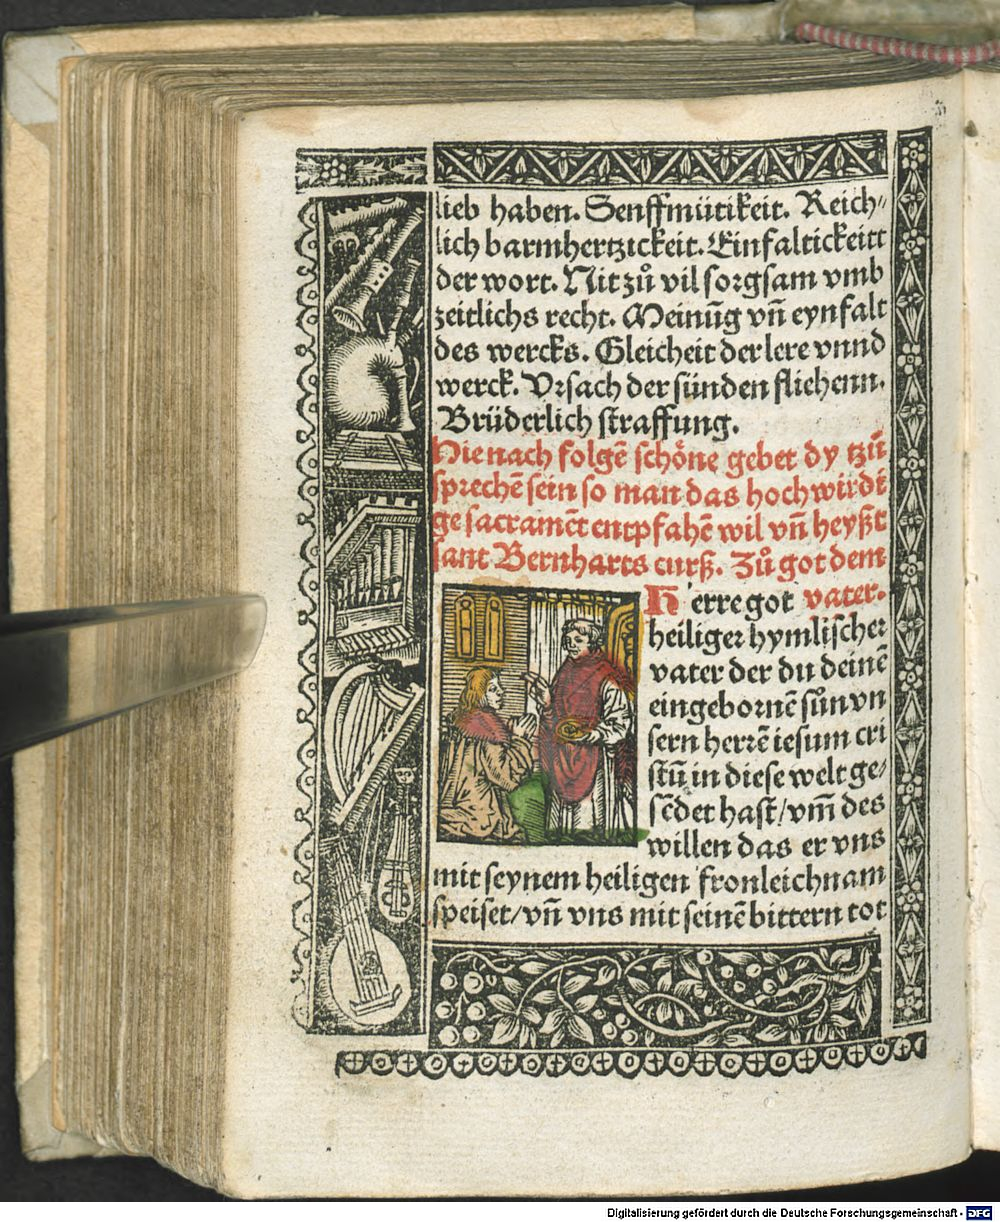 lieb haben. Senffmütikeit. Reich⸗
lich barmhertzickeit. Einfaltickeitt
der wort. Nit zů vil sorgsam vmb
zeitlichs recht. Meinūg vñ eynfalt
des wercks. Gleicheit der lere vnnd
werck. Vrsach der sünden fliehenn.
Brüderlich straffung.
Hie nach folgē schöne gebet dy tzū
sprechē sein so man das hochwirdi
ge sacramēt entpfahē wil vñ heyßt
sant Bernharts curß. Zů got dem
Herre got vater.
heiliger hymlischer
vater der du deinē
eingebornē sůn vn
sern herrē iesum cri
stū in diese welt ge⸗
sēdet hast/vm̄ des
willen das er vns
mit seynem heiligen fronleichnam
speiset/vñ vns mit seinē bittern tot
Digitalisierung gefördert durch die Deutsche Forschungsgemeinschaft - DFG